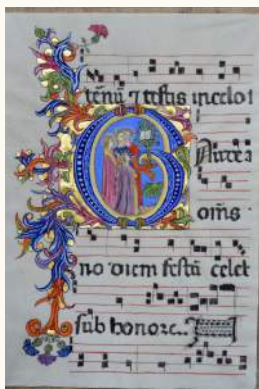 tēnū ⁊ testis in celo f
G Aude a
om̄s
no diem festū celeb
sub honore..